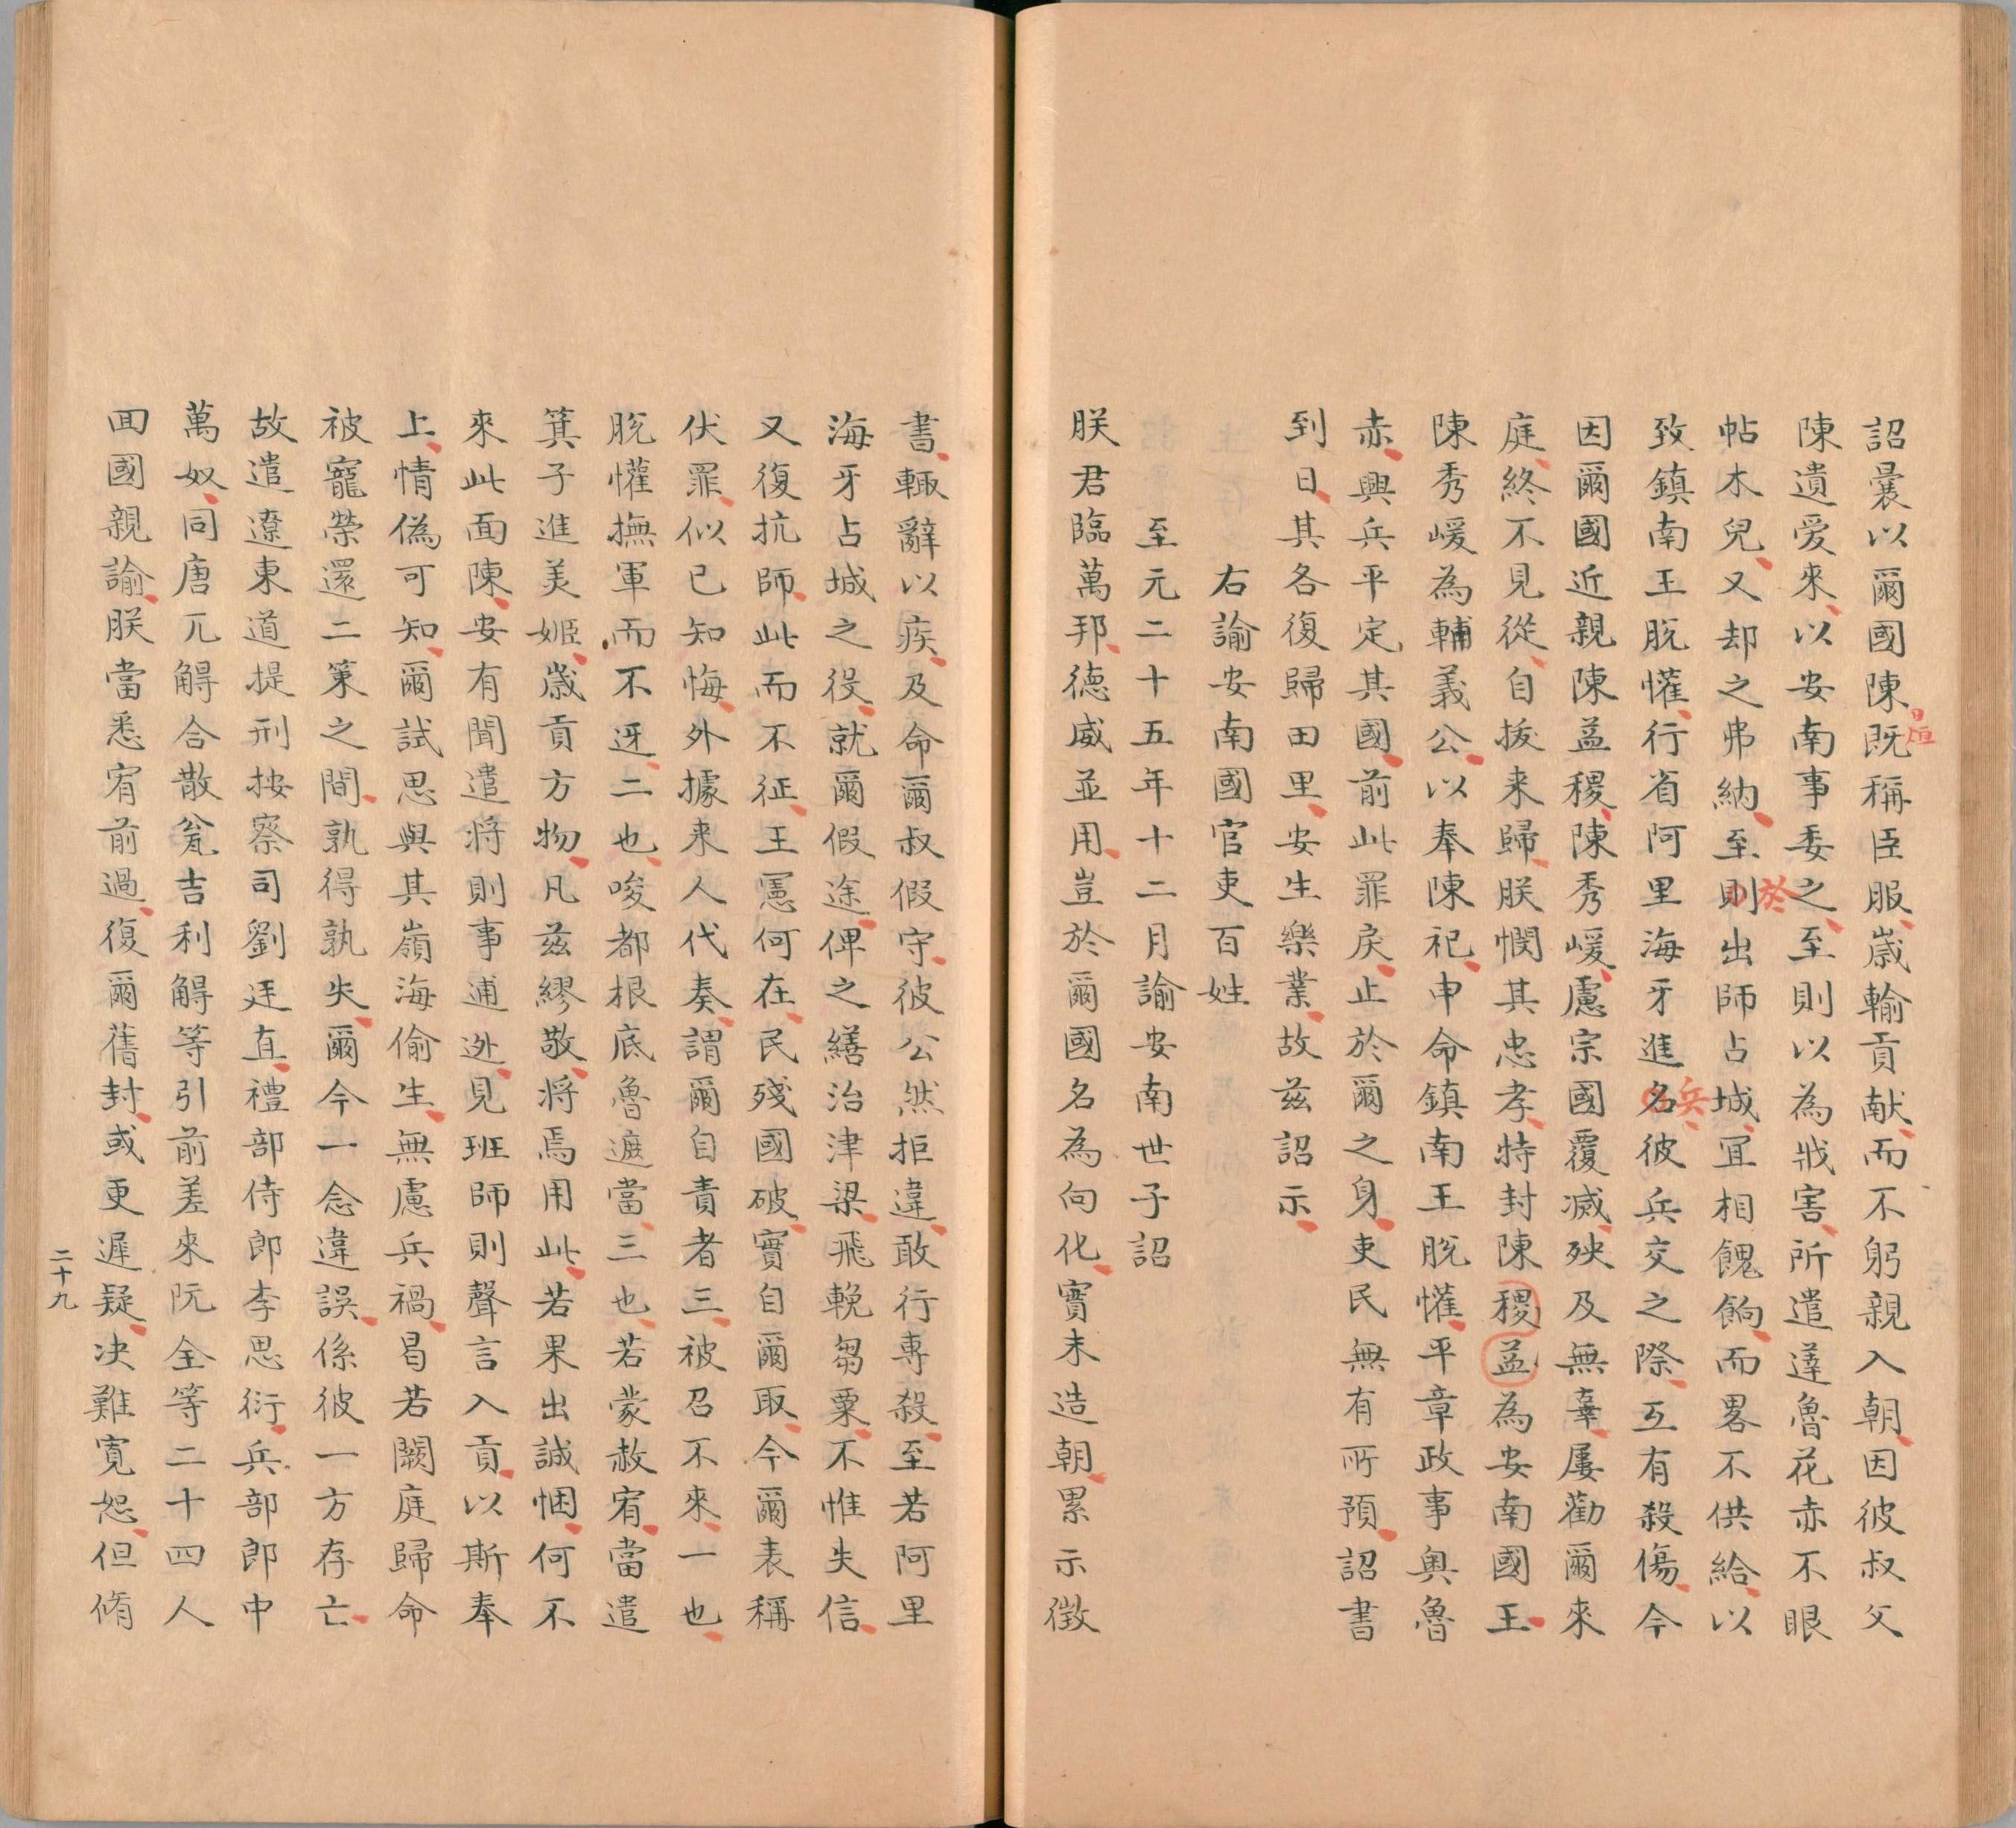 詔曩以爾國陳既稱臣服歲輸貢献而不躬親入朝因彼叔父
烜
陳遺爱來以安南事委之至則以為戕害所遣達魯花赤不眼
帖木兒又却之弗納至則出師占城冝相餽餉而畧不供給以
於
致鎮南王脫懽行省阿里海牙進名彼兵交之際互有殺傷今
兵
因爾國近親陳益稷陳秀嵈慮宗國覆滅殃及無辜屢勸爾來
庭終不見從自拔来歸朕憫其忠孝特封陳稷益為安南國王
陳秀嵈為輔義公以奉陳祀申命鎮南王脫懽平章政事奥魯
赤興兵平定其國前此罪戾止於爾之身吏民無有所預詔書
到日其各復歸田里安生樂業故兹詔示
右諭安南國官吏百姓
至元二十五年十二月諭安南世子詔
朕君臨萬邦德威並用豈於爾國名為向化實未造朝累示徴
書輙辭以疾及命爾叔假守彼公然拒違敢行専殺至若阿里
海牙占城之役就爾假途俾之繕治津梁飛輓芻粟不惟失信
又復抗師此而不征王憲何在民殘國破實自爾取今爾表稱
伏罪似已知悔外據来人代奏謂爾自責者三被召不來一也
脫懽撫軍而不迓二也唆都根底魯遮當三也若蒙赦宥當遣
箕子進美姬歲貢方物凡兹繆敬将焉用此若果出誠悃何不
來此面陳安有聞遣将則事逋迯見班師則聲言入貢以斯奉
上情偽可知爾試思與其嶺海偷生無慮兵禍曷若闕庭歸命
被寵榮還二策之間孰得孰失爾今一念違誤係彼一方存亡
故遣遼東道提刑按察司劉廷直禮部侍郎李思衍兵部郎中
萬奴同唐兀䚟合散瓮吉利䚟等引前差來阮全等二十四人
囬國親諭朕當悉宥前過復爾舊封或更遲疑决難寛恕但脩
二十九